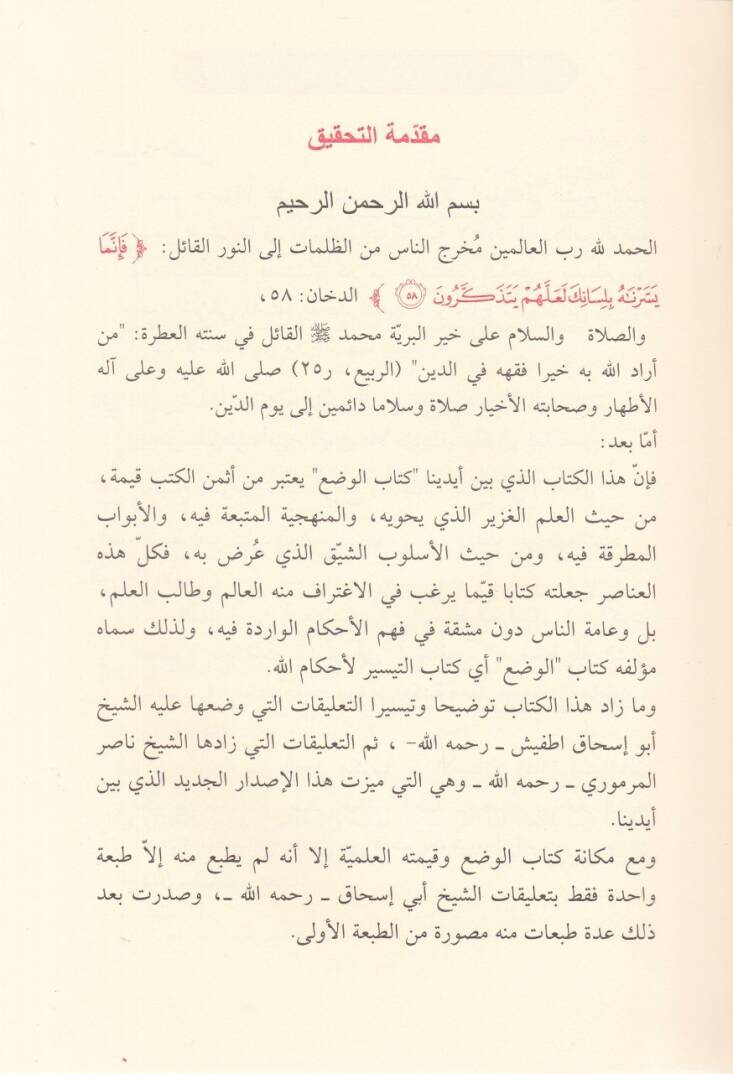 مقدّمة التحقيق
بسم الله الرحمن الرحيم
الحمد لله رب العالمين مُخرج الناس من الظلمات إلى النور القائل: ﴿ فَإِنَّمَا
يَسَّرْنَٰهُ بِلِسَانِكَ لَعَلَّهُمْ يَتَذَكَّرُونَ ٥٨ ﴾ الدخان: ٥٨،
والصلاة والسلام على خير البريّة محمد ﷺ القائل في سنته العطرة: "من
أراد الله به خيرا فقهه في الدين" (الربيع، ر٢٥) صلى الله عليه وعلى آله
الأطهار وصحابته الأخيار صلاة وسلاما دائمين إلى يوم الدّين.
أمّا بعد:
فإنّ هذا الكتاب الذي بين أيدينا "كتاب الوضع" يعتبر من أثمن الكتب قيمة،
من حيث العلم الغزير الذي يحويه، والمنهجية المتبعة فيه، والأبواب
المطرقة فيه، ومن حيث الأسلوب الشيّق الذي عُرض به، فكلّ هذه
العناصر جعلته كتابا قيّما يرغب في الاغتراف منه العالم وطالب العلم،
بل وعامة الناس دون مشقة في فهم الأحكام الواردة فيه، ولذلك سماه
مؤلفه كتاب "الوضع" أي كتاب التيسير لأحكام الله.
وما زاد هذا الكتاب توضيحا وتيسيرا التعليقات التي وضعها عليه الشيخ
أبو إسحاق اطفيش ـ رحمه الله- ، ثم التعليقات التي زادها الشيخ ناصر
المرموري ـ رحمه الله ـ وهي التي ميزت هذا الإصدار الجديد الذي بين
أيدينا.
ومع مكانة كتاب الوضع وقيمته العلميّة إلا أنه لم يطبع منه إلاّ طبعة
واحدة فقط بتعليقات الشيخ أبي إسحاق ـ رحمه الله ـ، وصدرت بعد
ذلك عدة طبعات منه مصورة من الطبعة الأولى.